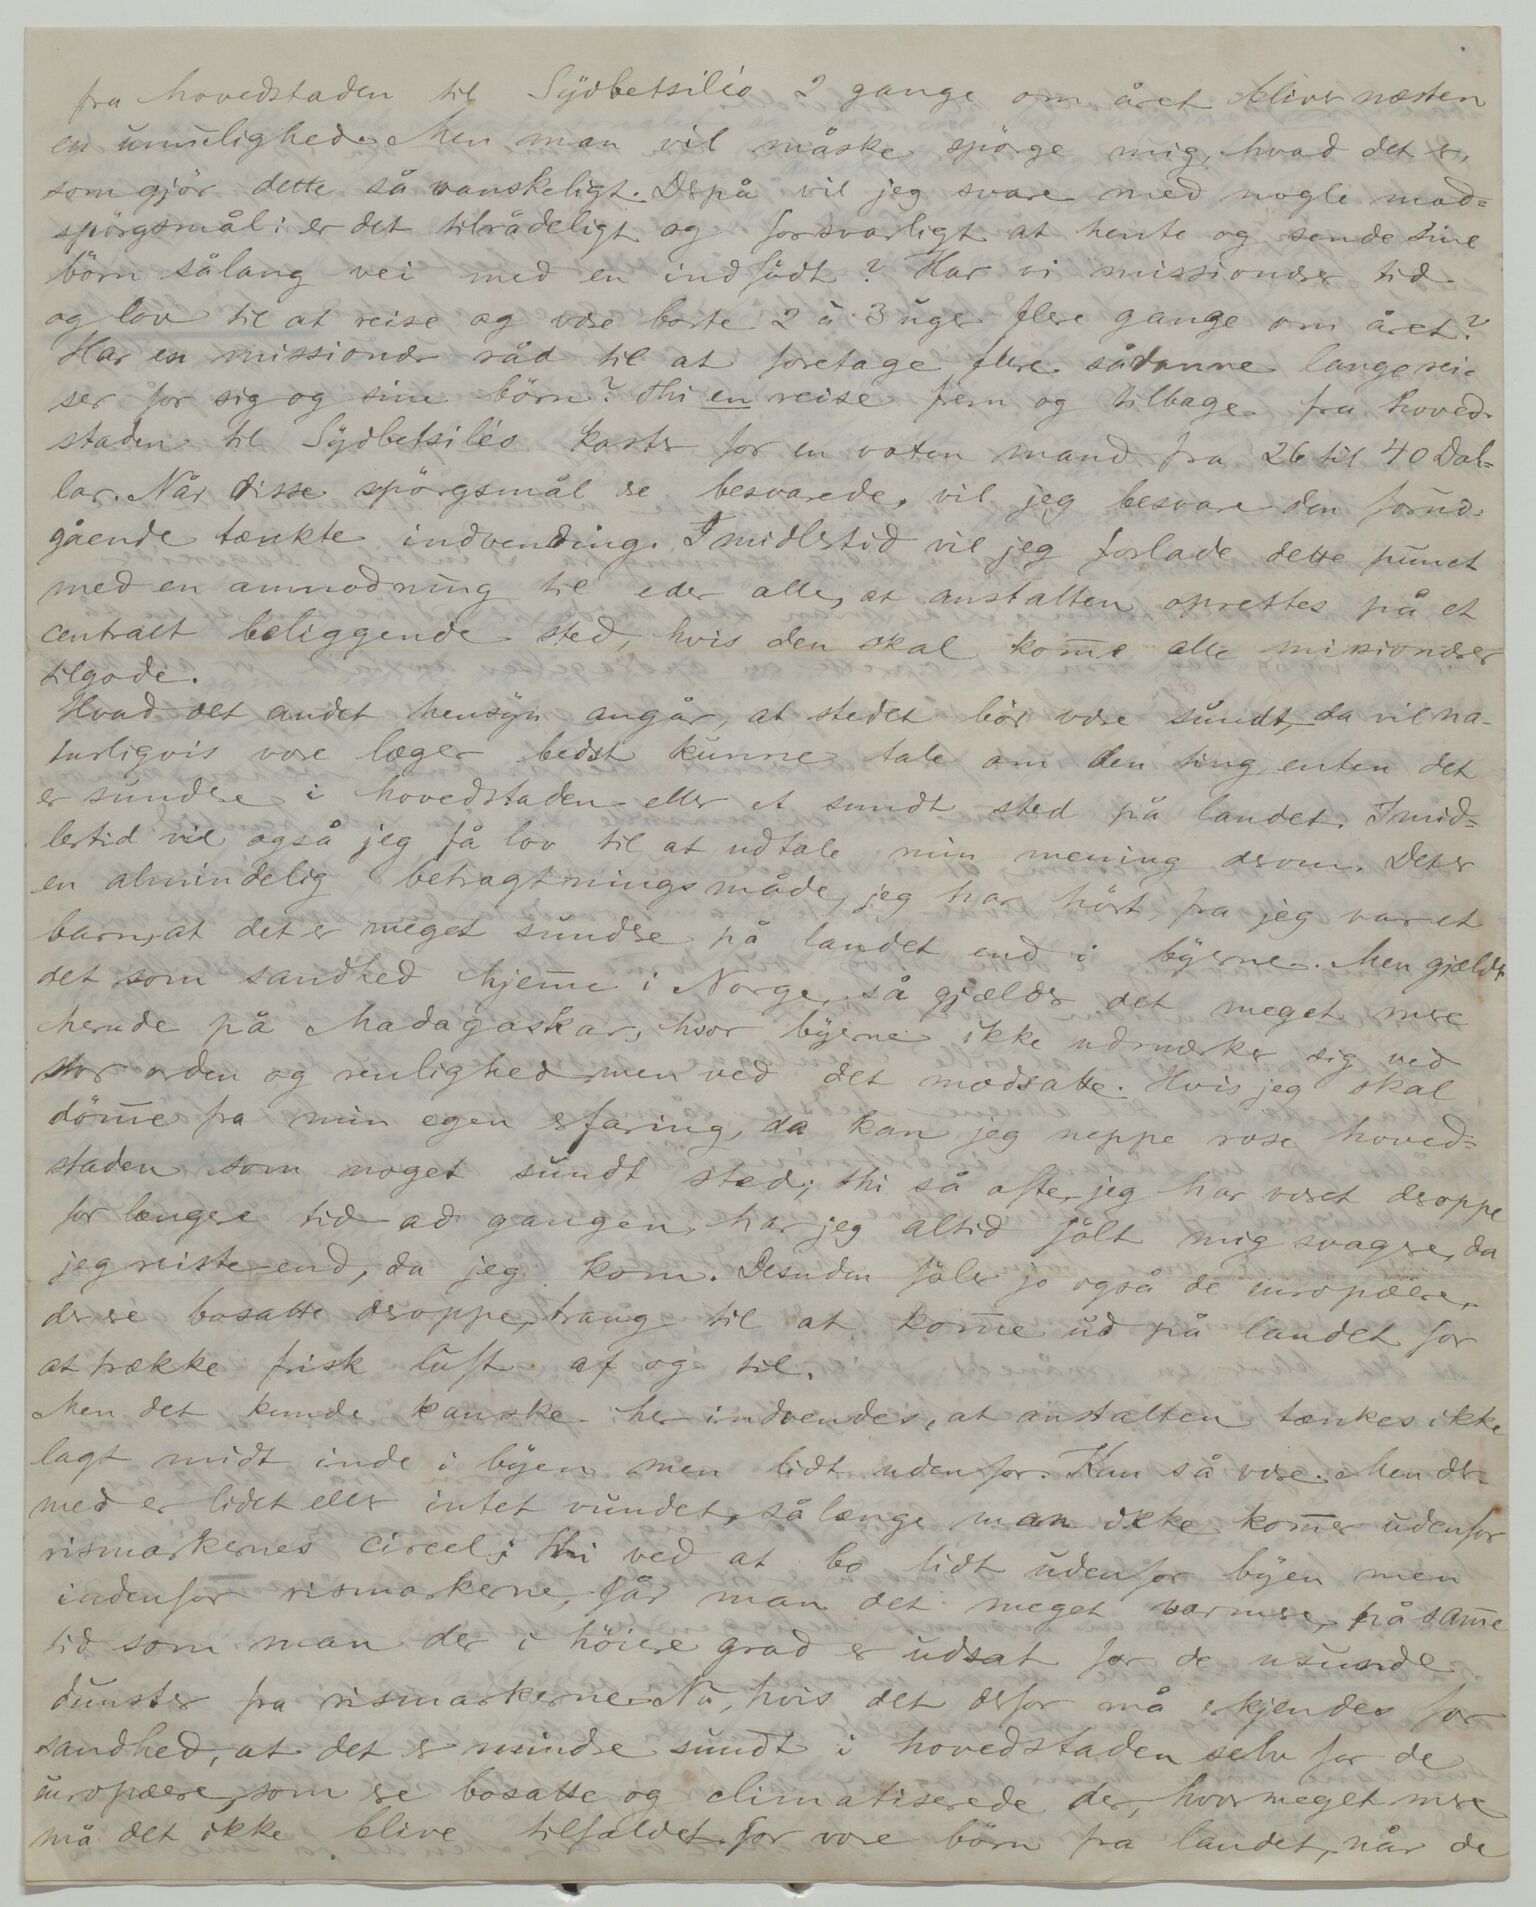 fra hovedstaden til Sydbetsileo 2 gange om året bliver næsten
en umulighed. Men man vil måske spörge mig, hvad det er,
som gjör dette så vanskeligt. Derpå vil jeg svare med nogle mod-
spörgsmål: er det tilrådeligt og forsvarligt at hente og sende sine
börn sålang vei med en indfödt? Har vi missionærer tid
og lov til at reise og være borte 2 à 3 uger flere gange om året?
Har en missionær råd til at foretage flere sådanne lange rei-
ser for sig og sine börn? Thi en reise frem og tilbage fra hoved-
staden til Sydbetsileo koster for en voxen mand fra 26 til 40 Dol-
lar. Når disse spörgsmål ere besvarede, vil jeg besvare den forud-
gående tænkte indvending. Imidlertid vil jeg forlade dette punct
med en anmodning til eder alle, at anstalten oprettes på et
centralt beliggende sted, hvis den skal kom̄e alle missionærer
tilgode.
Hvad det andet hensyn angår, at stedet bör være sundt, da vil na-
turligvis vore læger bedst kunne tale om den ting, enten det
er sundere i hovedstaden eller et sundt sted på landet. Imid-
lertid vil også jeg få lov til at udtale min mening derom. Det er
en almindelig betragtningsmåde, jeg har hört, fra jeg var et
barn, at det er meget sundere på landet end i byerne. Men gjælder
det som sandhed hjem̄e i Norge, så gjælder det meget mere
herude på Madagaskar, hvor byerne ikke udmærker sig ved
stor orden og renlighed, men ved det modsatte. Hvis jeg skal
döm̄e fra min egen erfaring, da kan jeg neppe rose hoved-
staden som noget sundt sted; thi så ofte jeg har været deroppe
for længere tid ad gangen, har jeg altid fölt mig svagere, da
jeg reiste end, da jeg kom. Desuden föler jo også de europæere,
der ere bosatte deroppe, trang til at kom̄e ud på landet for
at trække frisk luft af og til.
Men det kunde kanske her indvendes, at anstalten tænkes ikke
lagt midt inde i byen men lidt udenfor. Kan så være. Men der-
med er lidet eller intet vundet, sålænge man ikke kom̄er udenfor
rismarkernes circel; thi ved at bo lidt udenfor byen men
indenfor rismarkerne, får man det meget varmere, på sam̄e
tid som man der i höiere grad er udsat for de usunde
dunster fra rismarkerne. Nu, hvis det derfor må erkjendes for
sandhed, at det er mindre sundt i hovedstaden selv for de
europæere, som ere bosatte og climatiserede der, hvor meget mere
må det ikke blive tilfældet for vore börn fra landet, når de